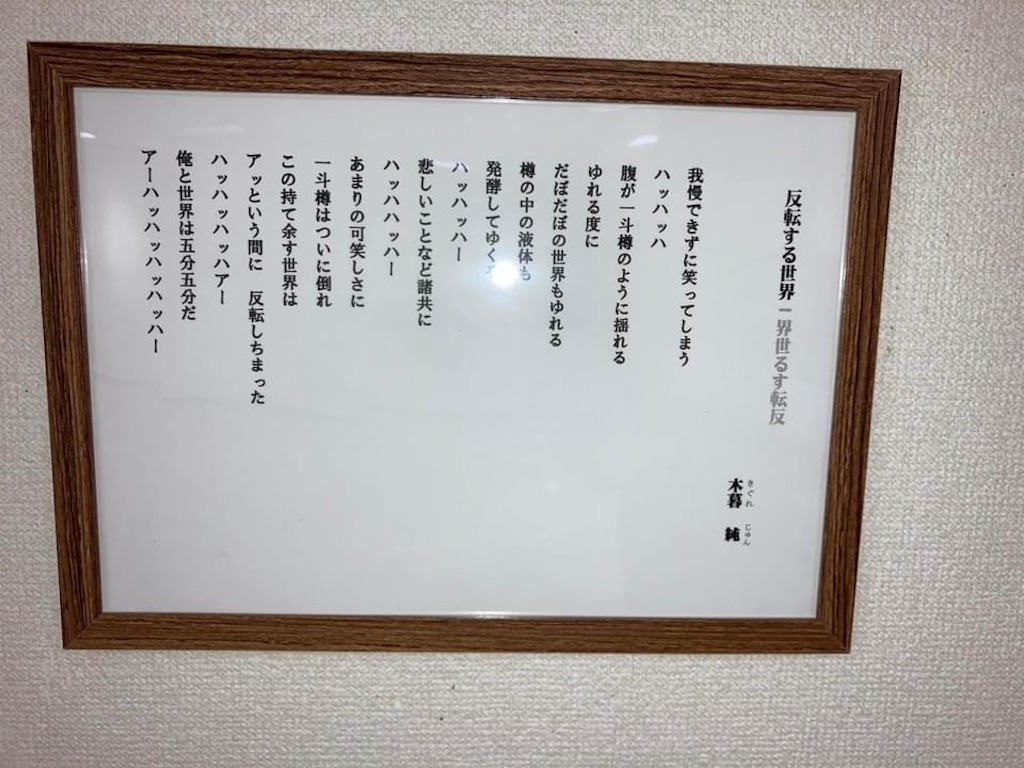 反転する世界 ー 界世るす転反
木暮 純
きぐれ じゅん
我慢できずに笑ってしまう
ハッハッハ
腹が一斗樽のように揺れる
ゆれる度に
だぼだぼの世界もゆれる
樽の中の液体も
発酵してゆくぞ
ハッハッハー
悲しいことなど諸共に
ハッハハッハー
あまりの可笑しさに
一斗樽はついに倒れ
この持て余す世界は
アッという間に 反転しちまった
ハッハッハッハアー
俺と世界は五分五分だ
アーハッハッハッハッハー